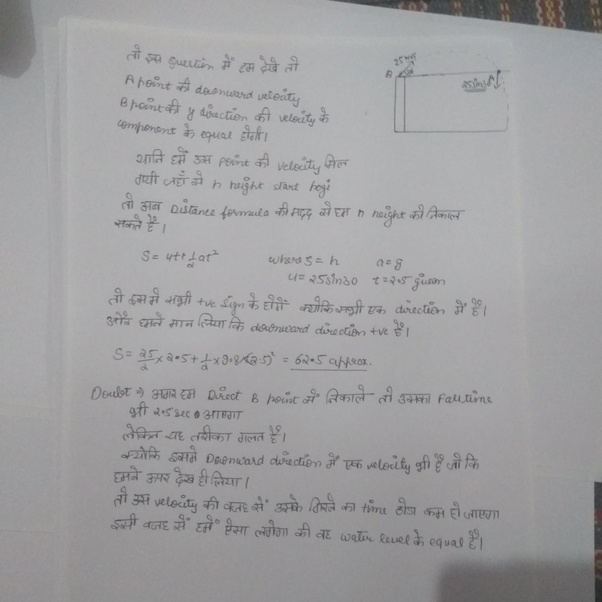 25m/s
B
25sin30
तो इस question में हम देखे तो
A point की downward velocity
B point की y direction की velocity के
component के equal होगी।
याति हमें उस point की velocity मिल
गयी जहाँ से h height start hogi
तो अब Distance formula की मदद से हम h height को निकाल
सकते है।
S = ut + 1/2 at² where S = h a = g
u = 25sin30 t = 2.5 given
तो इसमे सभी +ve sign के होगें क्योंकि सभी एक direction में है।
और हमने मान लिया कि downward direction +ve है।
S = 25/2 × 2.5 + 1/2 × 9.8 × (2.5)² = 62.5 approx.
Doubt ⇒ अगर हम Direct B point से निकाले तो उसका Fall time
भी 2.5 sec आएगा
लेकिन यह तरीका गलत है।
क्योंकि इसमे Downward direction में एक velocity भी है जो कि
हमने ऊपर देख ही लिया।
तो उस velocity की वजह सें उसके गिरने का time थोडा कम हो जाएगा
इसी वजह सें हमें ऐसा लगेगा की वह water level के equal है।